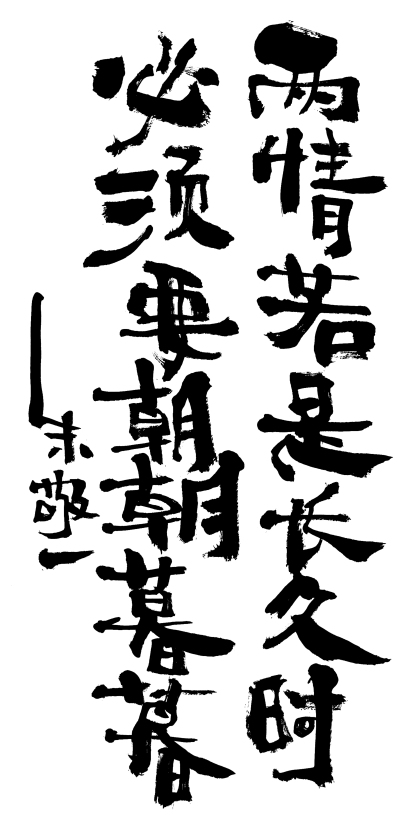 两情若是长久时
必须要朝朝暮暮
朱敬一